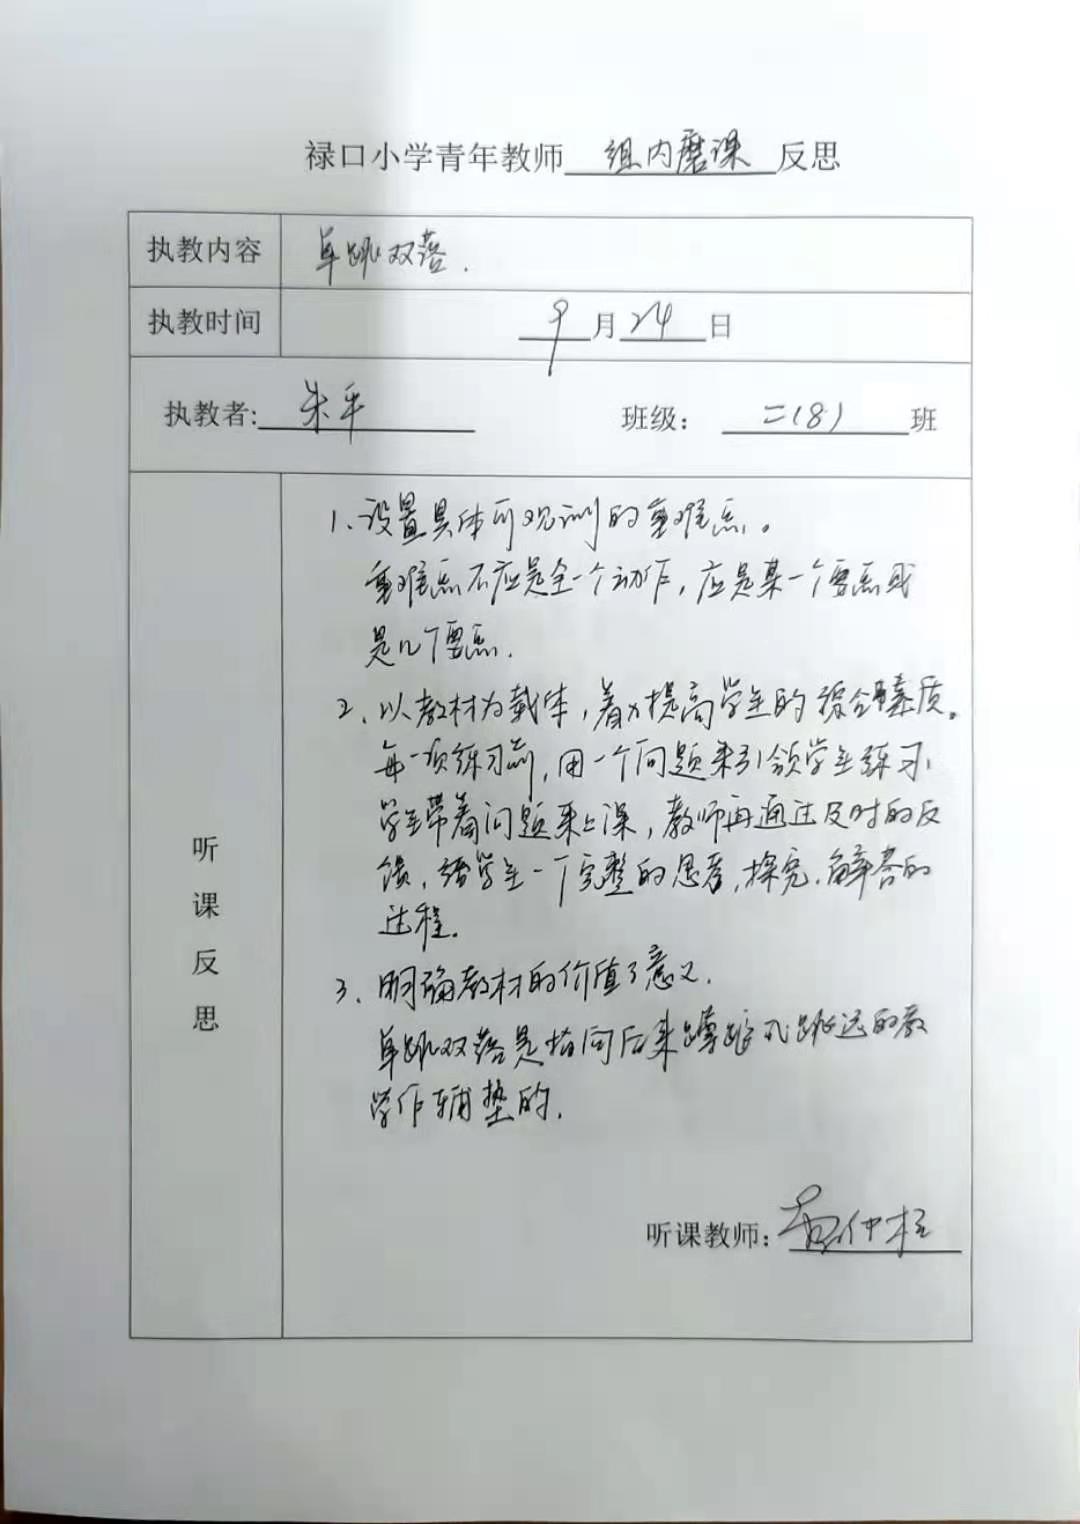 禄口小学青年教师 组内磨课 反思
执教内容 单跳双落.
执教时间 9月24日
执教者: 朱平 班级： 二(8) 班
听课反思
1、设置具体可观测的重难点。
重难点不应是全一个动作，应是某一个要点或
是几个要点.
2、以教材为载体，着力提高学生的综合素质。
每一项练习前，用一个问题来引领学生练习，
学生带着问题来上课，教师再通过及时的反
馈，给学生一个完整的思考，探究、解答的
过程.
3、明确教材的价值了意义.
单跳双落是指向后来蹲踞式跳远的教
学作铺垫的.
听课教师： 仲柱